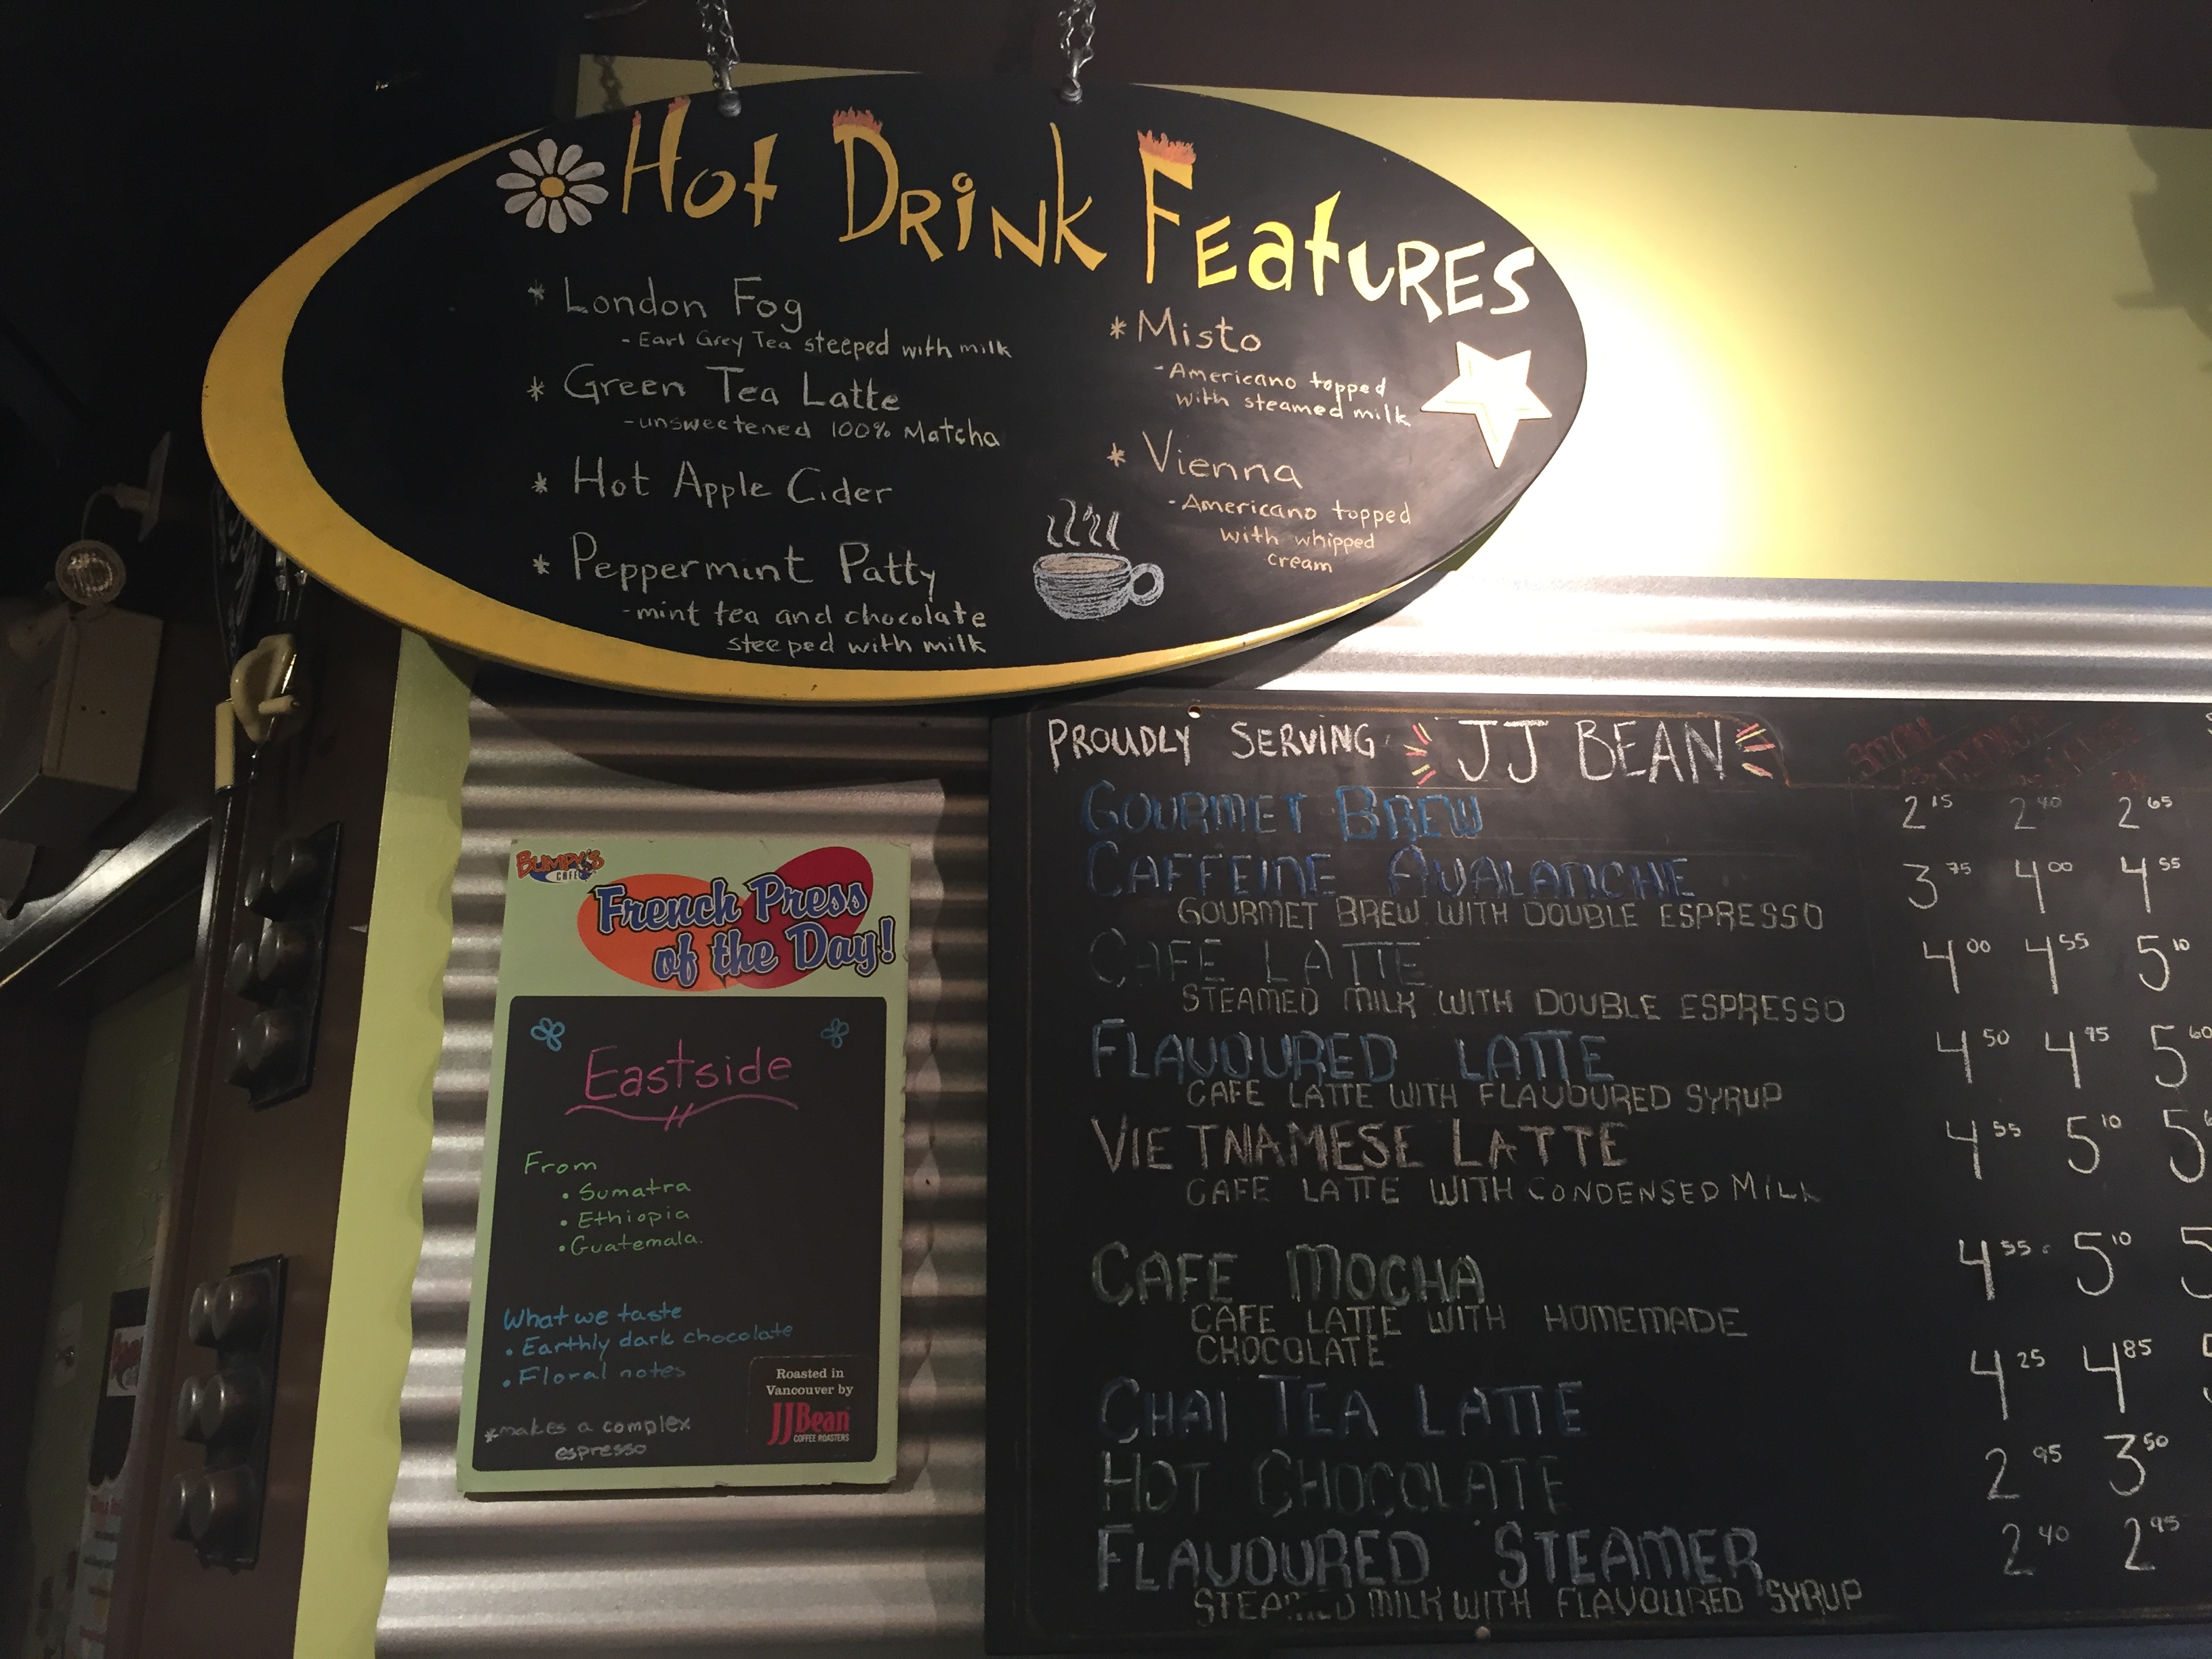 Hot Drink Features
* London Fog
- Earl Grey Tea steeped with milk
* Green Tea Latte
- unsweetened 100% Matcha
* Hot Apple Cider
* Peppermint Patty
- mint tea and chocolate
steeped with milk
* Misto
- Americano topped
with steamed milk
* Vienna
- Americano topped
with whipped
cream
BUMPY'S
CAFE
French Press
of the Day!
Eastside
From
• Sumatra
• Ethiopia
• Guatemala.
What we taste
• Earthly dark chocolate
• Floral notes
*makes a complex
espresso
Roasted in
Vancouver by
JJBean
COFFEE ROASTERS
PROUDLY SERVING JJ BEAN
GOURMET BREW 2 15 2 40 2 65
CAFFEINE AVALANCHE 3 75 4 00 4 55
GOURMET BREW WITH DOUBLE ESPRESSO
CAFE LATTE 4 00 4 55 5 10
STEAMED MILK WITH DOUBLE ESPRESSO
FLAVOURED LATTE 4 50 4 95 5 60
CAFE LATTE WITH FLAVOURED SYRUP
VIETNAMESE LATTE 4 55 5 10 5
CAFE LATTE WITH CONDENSED MILK
CAFE MOCHA 4 55 5 10 5
CAFE LATTE WITH HOMEMADE
CHOCOLATE
CHAI TEA LATTE 4 25 4 85
HOT CHOCOLATE 2 95 3 50
FLAVOURED STEAMER 2 40 2 95
STEAMED MILK WITH FLAVOURED SYRUP